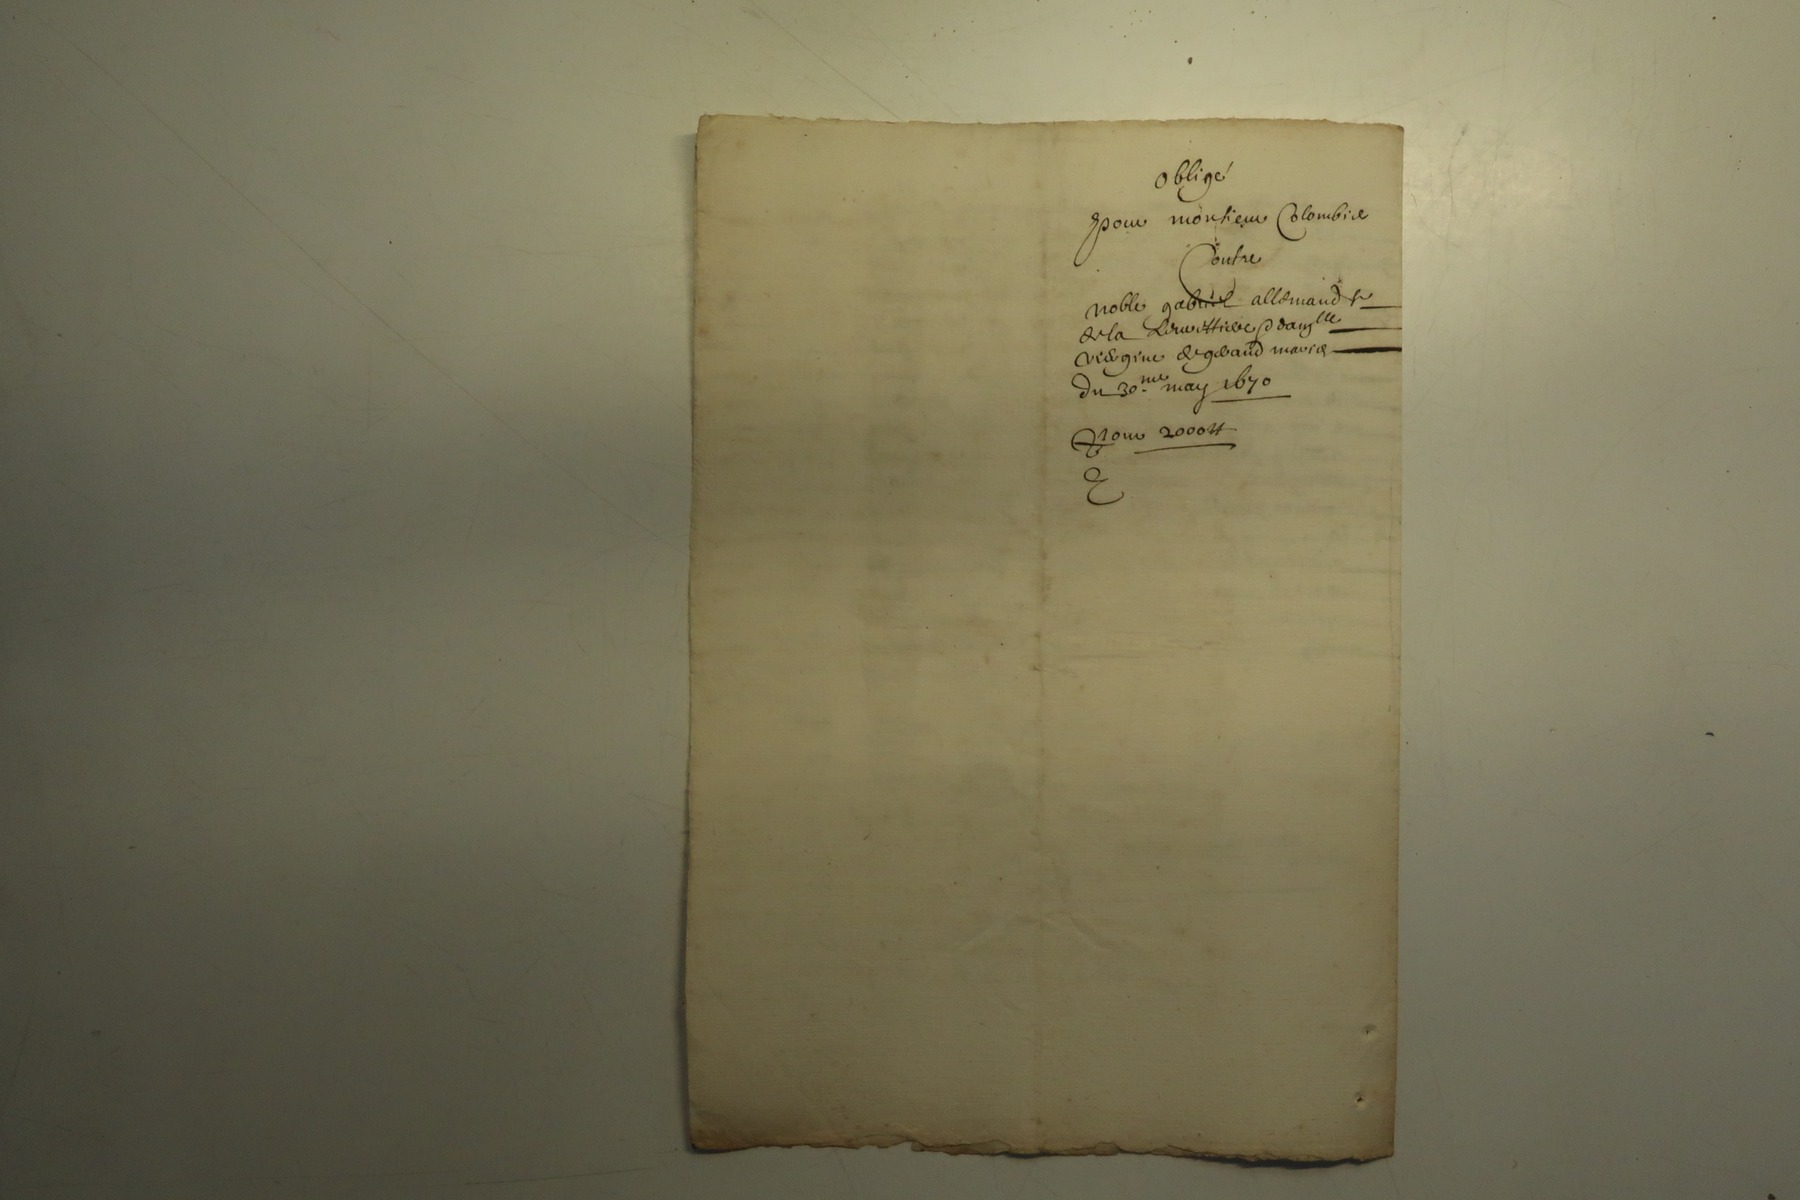 Obligé
pour monsieur Colombie
Contre
noble gabriel allemand sr
de la &damlle
virgine de grand marie
du 30.me may 1670
Pour 2000 tt